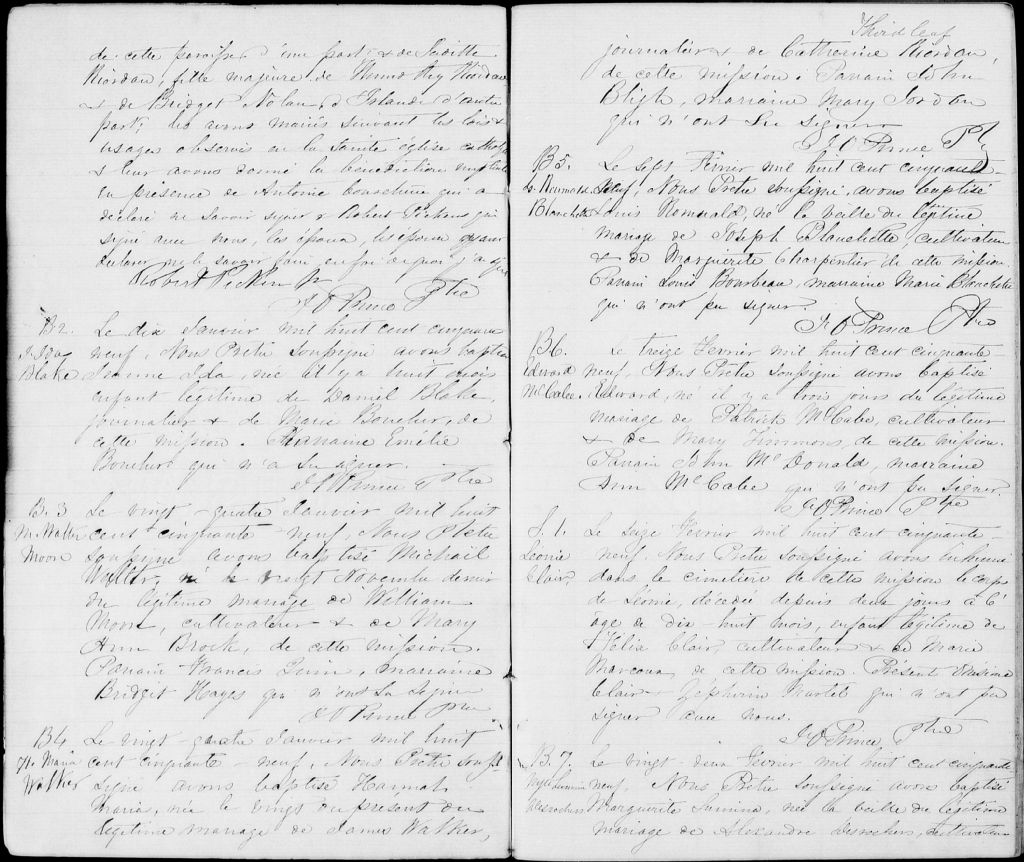 de cette paroisse d'une part, & de Juditte
Riordan, fille majeure de Riordan
& de Bridget Nolan, d'Irlande d'autre
part; les avons mariés suivant les lois &
usages observés en la Sainte église cathol
& leur avons donné la bénédiction nuptiale
en présence de Antoine qui a
déclaré ne savoir signer & Robert Picken qui
signé avec nous, les époux, les époux ayant
déclaré ne le savoir faire, en foi de quoi j'ai signé
Robert Picken Jr
J O Prince Ptre
B2. Le dix Janvier mil huit cent cinquante
J. Ida neuf, Nous Prêtre soussigné avons baptisé
Blake Jeanne Ida, née il y a huit mois
enfant légitime de Daniel Blake,
journalier & de Marie Boucher, de
cette mission. Marraine Emélie
Bouchers qui n'a su signer.
J O Prince Ptre
B. 3 Le vingt-quatre Janvier mil huit
M. Walter cent cinquante-neuf, Nous Prêtre
Moon soussigné avons baptisé Michail
Walter, né le vingt Novembre dernier
du légitime mariage de William
Moon, cultivateur & de Mary
Ann Brock, de cette mission.
Parrain Francis Quin, marraine
Bridget Hayes qui n'ont su signer
J O Prince Ptre
B4 Le vingt-quatre Janvier mil huit
H. Maria cent cinquante-neuf, Nous Prêtre sous
Walker signé avons baptisé Hannah
Maria, née le vingt du présent du
légitime mariage de James Walker,
Third leaf
journalier & de Catherine Riordan,
de cette mission. Parrain John
Bligh, marraine Mary Jordan
qui n'ont su signer
J O Prince Pt
B5. Le sept Février mil huit cent cinquante-
L. Romuald neuf, Nous Prêtre soussigné avons baptisé
Blanchette Louis Romuald, né la veille du légitime
mariage de Joseph Blanchette, cultivateur
& de Marguerite Charpentier de cette mission.
Parrain Louis Bourbeau, marraine Marie Blanchette
qui n'ont pu signer.
J O Prince Ptre
B6. Le treize Fevrier mil huit cent cinquante-
Edward neuf, Nous Prêtre soussigné avons baptisé
McCabe. Edward, né il y a trois jours du légitime
mariage de Patrick McCabe, cultivateur
& de Mary Timmons, de cette mission.
Parrain John McDonald, marraine
Ann McCabe qui n'ont pu signer.
J O Prince Ptre
S. 1. Le seize Février mil huit cent cinquante-
Léonie neuf, Nous Prêtre soussigné avons inhumé
Clair, dans le cimetière de cette mission le corps
de Léonie, décédée depuis deux jours à l'
age de dix-huit mois, enfant légitime de
Hélie Clair, cultivateur & de Marie
Marcoux, de cette mission. Présent Onésime
Clair & Zéphirin Martel qui n'ont pu
signer avec nous.
J O Prince Ptre
B. 7. Le vingt-deux Février mil huit cent cinquante-
neuf, Nous Prêtre soussigné avons baptisé
Desrochers Marguerite Lumina, née la veille du légitime
mariage de Alexandre Desrochers, cultivateur